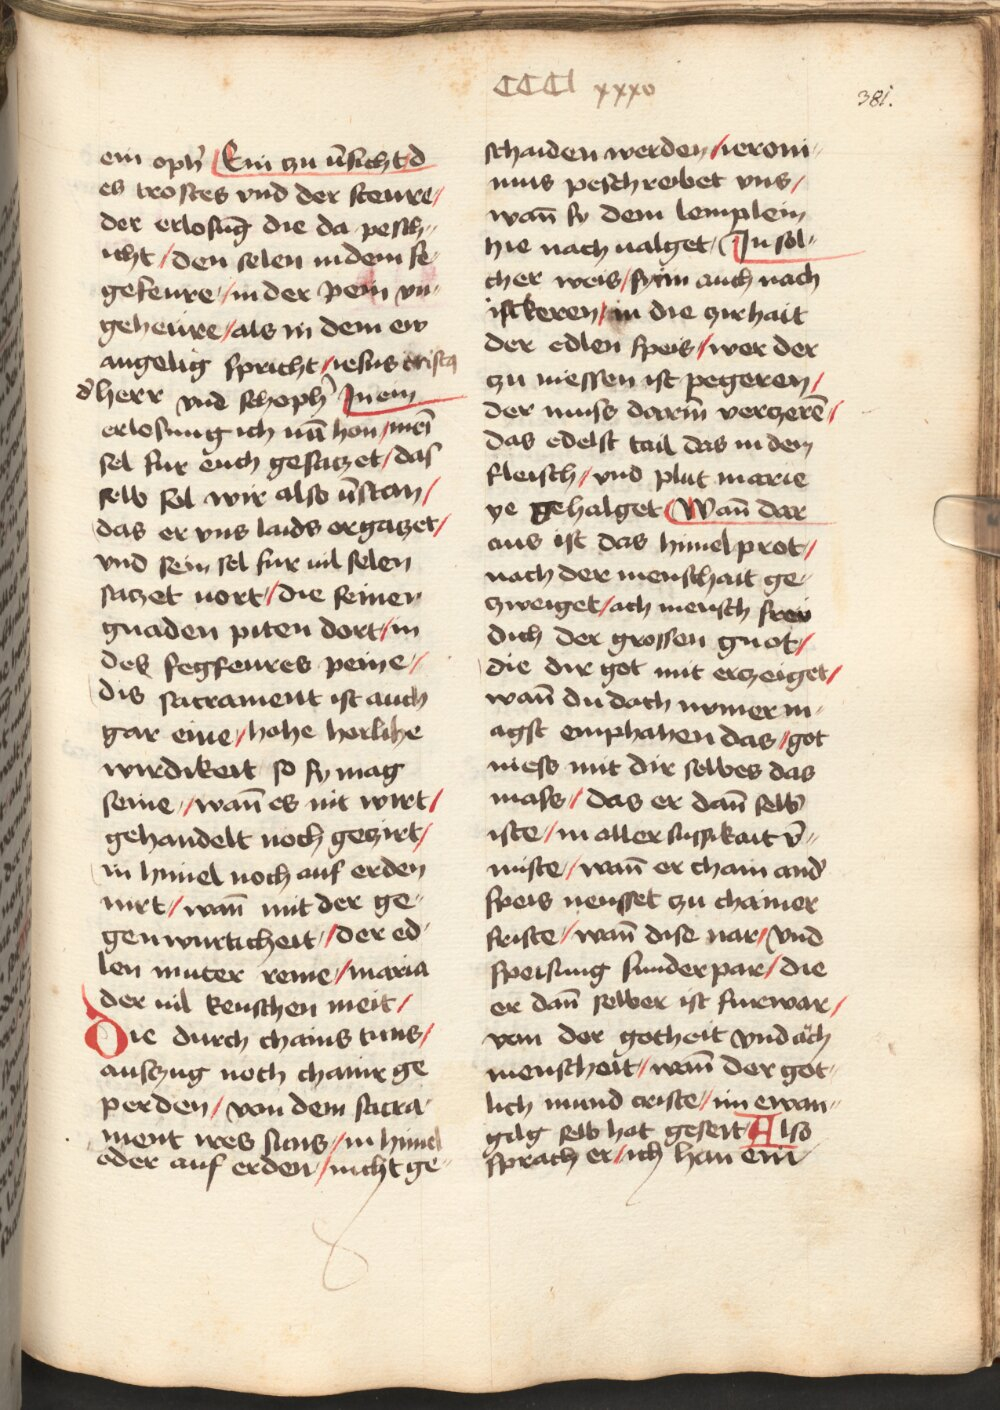 CCCl xxxv
381.
ein oph̄ Ein zu v̄sicht d
es trostes vnd der steure /
der erlosūg die da pesch-
icht / den selen in dem fe-
gefeure / in der pein vn-
geheure / als in dem ew
angelig spricht / iesus crist
d̄ herr vnd schoph̄ In ein
erlosung ich nū hon / mei
sel fur euch gesaczet / das
selb sol wir also v̄stan /
das er vns laids ergaczet /
vnd sein sel fur uil selen
saczet uort / die seiner
gnaden piten dort / in
des fegfeures peine /
dis sacrament ist auch
gar eine / hohe herliche
wirdikeit so sy mag
seine / wan̄ es nit wirt /
gehandelt noch gezirt /
in himel noch auf erden
nirt / wan̄ mit der ge-
genwurticheit / der ed-
len muter reine / maria
der uil keuschen meit /
Die durch chains tuns /
auszug noch chainr ge
perden / von dem sacra-
ment wes suns / in himel
oder auf erden / nicht ge-
schaiden werden / ieroni-
mus peschreibet vns /
wan̄ sy dem lemplein
hie nach ualget / In sol-
cher weis / sy im auch nach
ist keren / in die zirhait
der edlen speis / wer der
zu niessen ist pegeren /
der muss darin̄ verzerē /
das edelst tail das in dem
fleisch / vnd plut marie
ye gehalget Wan̄ dar
aus ist das himel prot /
nach der menschait ge-
zweiget / ach mensch frew
dich der grossen guot /
die dir got mit erzeiget /
wan̄ du doch nymer m-
agst emphahen das / got
niess mit dir selbes das
mass / das er dan̄ selb̄
iste / in aller sussikait v̄-
miste / wan̄ er chain and̄
speis neusset zu chainer
friste / wan̄ dise nar / vnd
speisung sunder par / die
er dan̄ selber ist furwar /
von der gotheit vnd ach
menscheit / wan̄ der got-
lich mund criste / im ewan-
gelg selb hat geseit Also
sprach er / ich han ein